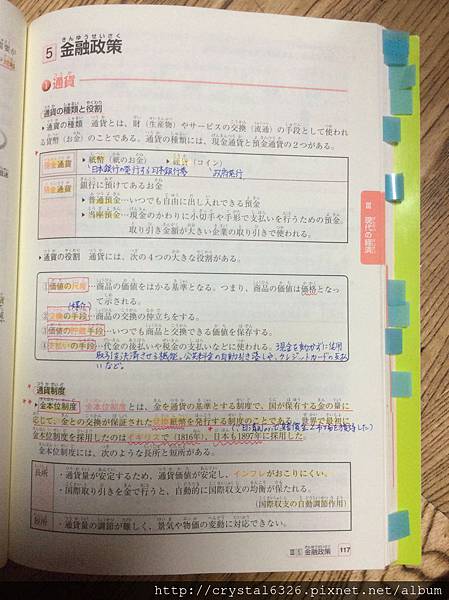 きんゆうせいさく
5 金融政策
1 通貨
通貨の種類と役割
▶通貨の種類 通貨とは、財（生産物）やサービスの交換（流通）の手段として使われ
る貨幣（お金）のことである。通貨の種類には、現金通貨と預金通貨の2つがある。
現金通貨
▶紙幣（紙のお金） ▶硬貨（コイン）
日本銀行の発行する日本銀行券 政府発行
預金通貨
銀行に預けてあるお金
▶普通預金…いつでも自由に出し入れできる預金
▶当座預金…現金のかわりに小切手や手形で支払いを行うための預金。
取り引き金額が大きい企業の取り引きで使われる。
▶通貨の役割 通貨には、次の4つの大きな役割がある。
①価値の尺度…商品の価値をはかる基準となる。つまり、商品の価値は価格となっ
て示される。
②交換の手段…商品の交換の仲立ちをする。
③価値の貯蔵手段…いつでも商品と交換できる価値を保存する。
④支払いの手段…代金の後払いや税金の支払いなどに使われる。
通貨制度
▶金本位制度 金本位制度とは、金を通貨の基準とする制度で、国が保有する金の量に
応じて、金との交換が保証された兌換紙幣を発行する制度のことである。世界で最初に
金本位制度を採用したのはイギリスで（1816年）、日本も1897年に採用した。
金本位制度には、次のような長所と短所がある。
長所
・通貨量が安定するため、通貨価値が安定し、インフレがおこりにくい。
・国際取り引きを金で行うと、自動的に国際収支の均衡が保たれる。
（国際収支の自動調節作用）
短所
・通貨量の調節が難しく、景気や物価の変動に対応できない。
III 現代の経済
III 5 金融政策 117
http://crystal6326.pixnet.net/album